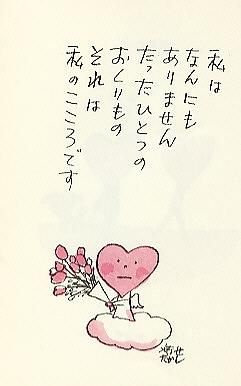 私は
なんにも
ありません
たったひとつの
おくりもの
それは
私のこころです